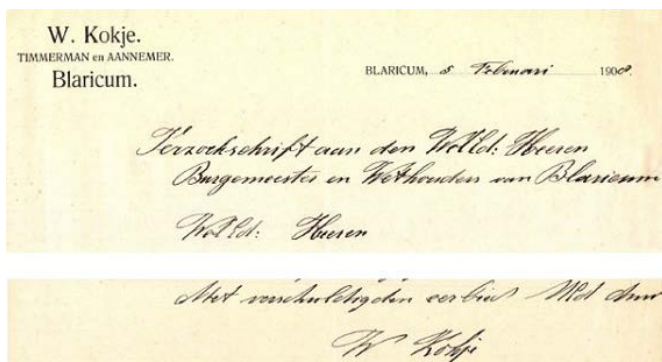 W. Kokje.
TIMMERMAN en AANNEMER.
Blaricum.
BLARICUM, 8 Februari 1908.
Verzoekschrift aan den WelEd: Heeren
Burgemeester en Wethouders van Blaricum
WelEd: Heeren
Met verschuldigden eerbied UEd dnr
W Kokje